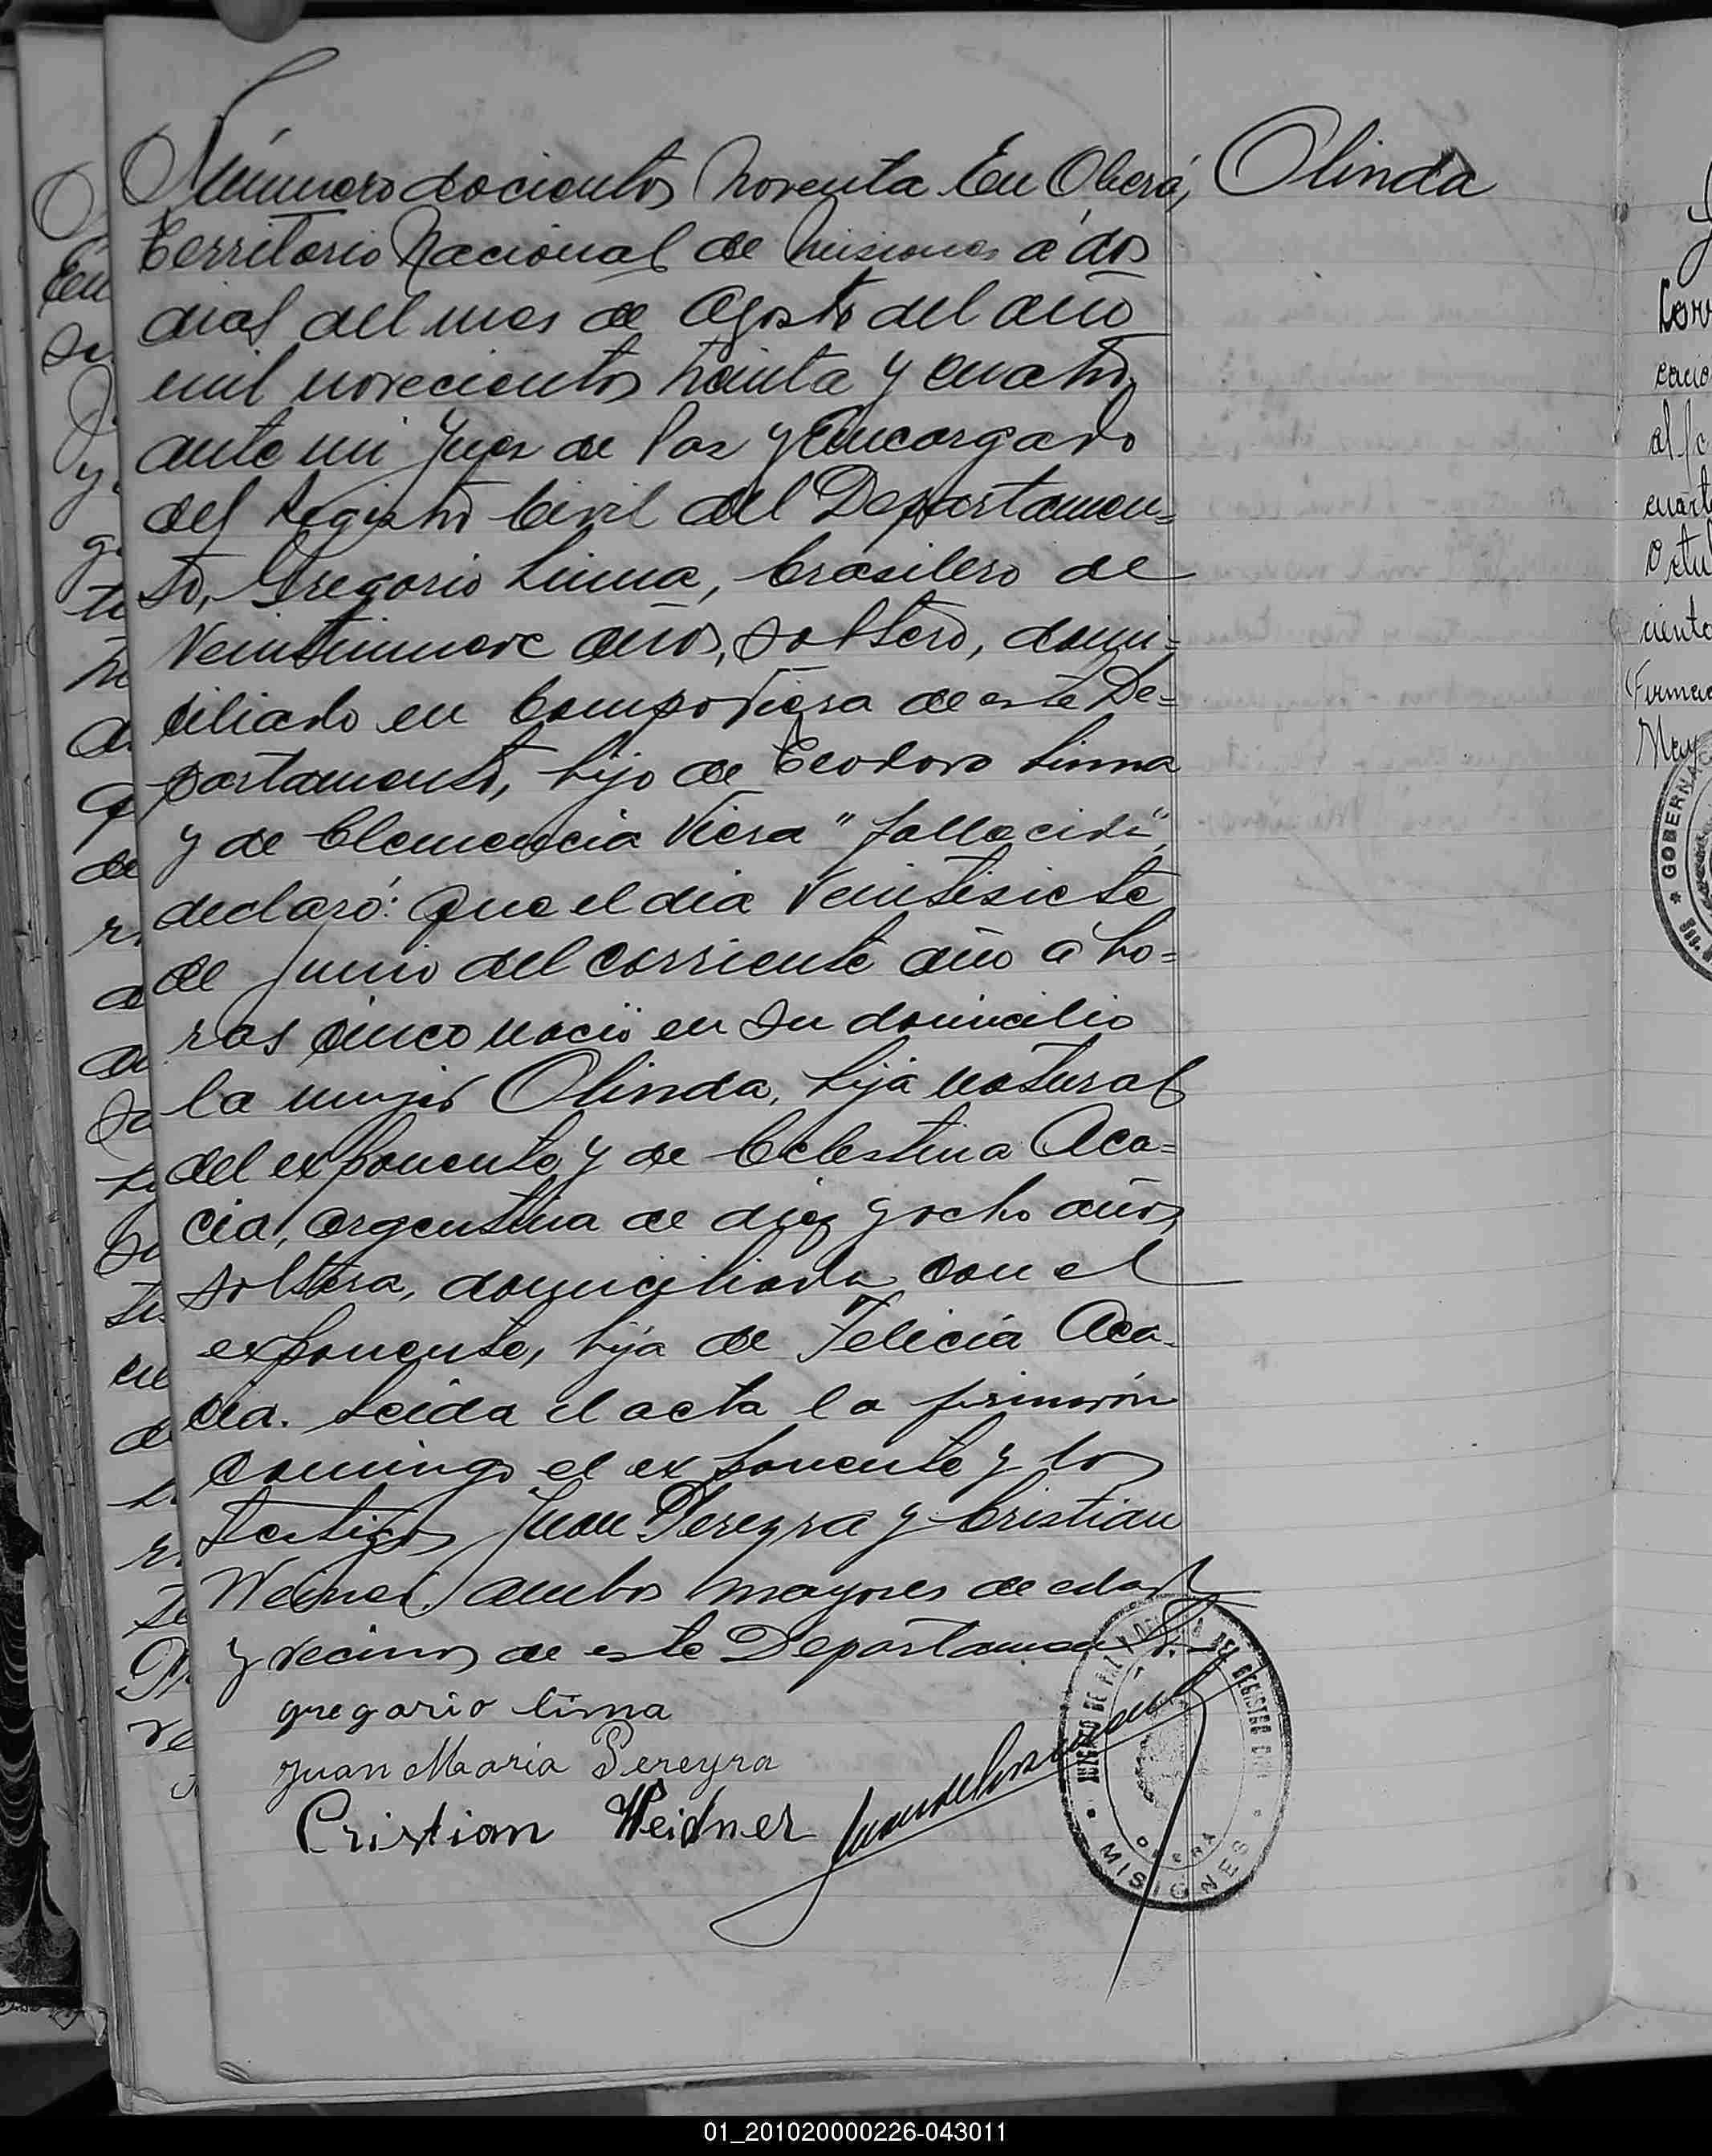 Olinda
Número docientos noventa En Oberá,
Territorio Nacional de Misiones a dos
dias del mes de Agosto del año
mil novecientos treinta y cuatro,
ante mi Juez de Paz y Encargado
del Registro Civil del Departamen=
to, Gregorio Linma, brasilero de
veintinueve años, soltero, domi=
ciliado en Campo Viera de este De=
partamento, hijo de Teodoro Linma
y de Clemencia Viera "fallecida",
declaró: Que el dia veintisiete
de Junio del corriente año a ho=
ras cinco nació en su domicilio
la mujer Olinda, hija natural
del exponente y de Celestina Aca=
cia, argentina de diez y ocho años,
soltera, domiciliada con el
exponente, hija de Felicia Aca-
cia. Leida el acta la firmarón
conmingo el exponente y los
testigos Juan Pereyra y Cristian
Weiner, ambos mayores de edad
y vecinos de este Departamento.
gregorio lima
Juan Maria Pereyra
Cristian Weidner
JUZGADO DE PAZ DEL REGISTRO CIVIL
OBERÁ
MISIONES
En
y
de
Corr
cuart
ciento
GOBERNAC
01_201020000226-043011